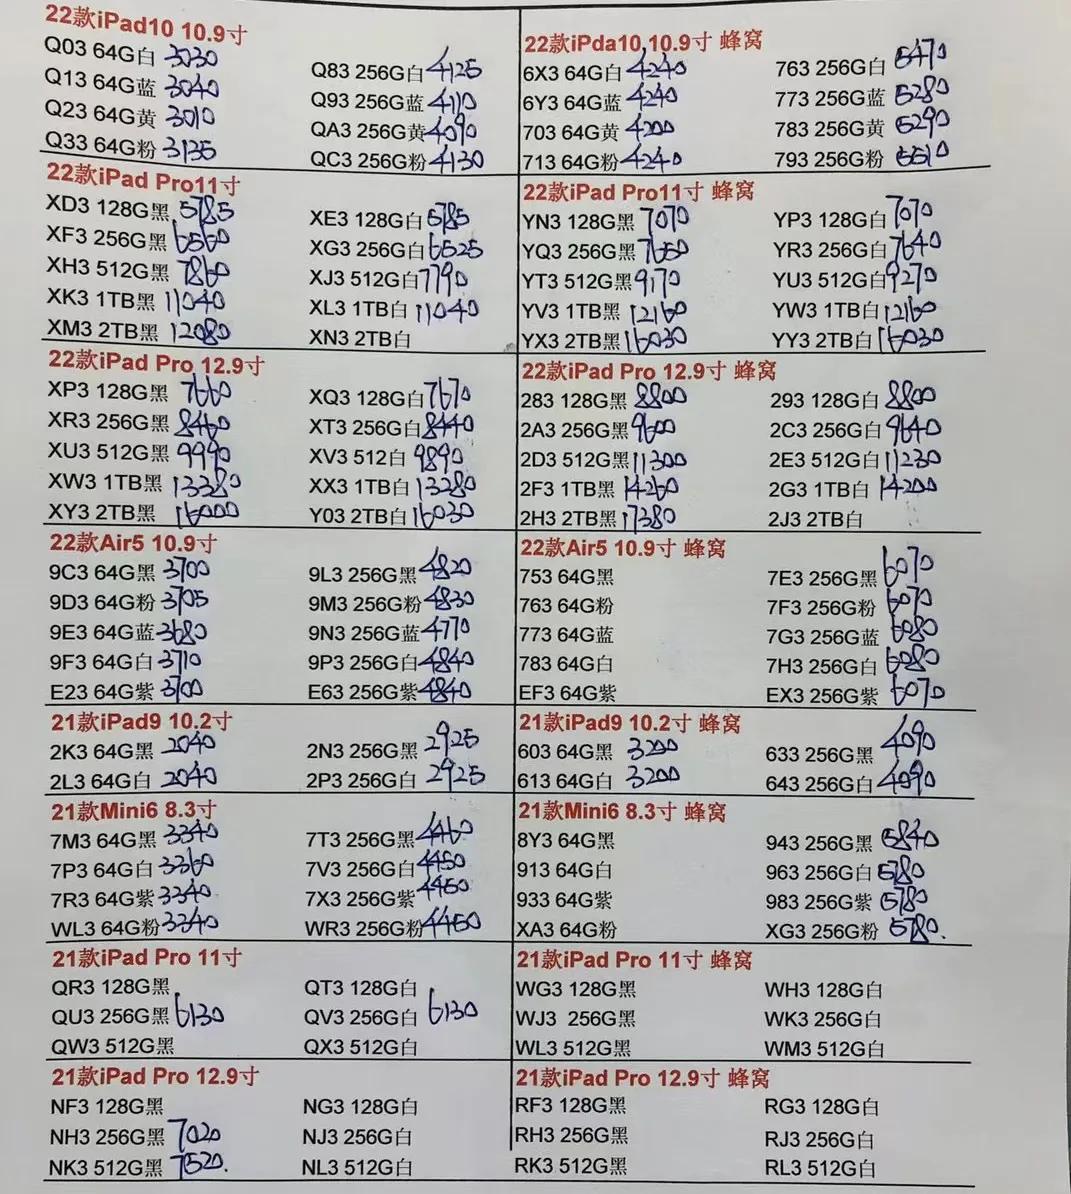 22款iPad10 10.9寸
Q03 64G白 3030
Q13 64G蓝 3040
Q23 64G黄 3010
Q33 64G粉 3135
Q83 256G白 4125
Q93 256G蓝 4110
QA3 256G黄 4090
QC3 256G粉 4130
22款iPda10,10.9寸 蜂窝
6X3 64G白 4240
6Y3 64G蓝 4240
703 64G黄 4200
713 64G粉 4240
763 256G白 5470
773 256G蓝 5280
783 256G黄 5290
793 256G粉 5510
22款iPad Pro11寸
XD3 128G黑 5785
XF3 256G黑 6560
XH3 512G黑 7860
XK3 1TB黑 11040
XM3 2TB黑 12080
XE3 128G白 5785
XG3 256G白 6525
XJ3 512G白 7790
XL3 1TB白 11040
XN3 2TB白
22款iPad Pro11寸 蜂窝
YN3 128G黑 7070
YQ3 256G黑 7650
YT3 512G黑 9170
YV3 1TB黑 12160
YX3 2TB黑 16030
YP3 128G白 7070
YR3 256G白 7640
YU3 512G白 9270
YW3 1TB白 12160
YY3 2TB白 16030
22款iPad Pro 12.9寸
XP3 128G黑 7660
XR3 256G黑 8460
XU3 512G黑 9990
XW3 1TB黑 13380
XY3 2TB黑 16000
XQ3 128G白 7670
XT3 256G白 8440
XV3 512白 9890
XX3 1TB白 13280
Y03 2TB白 16030
22款iPad Pro 12.9寸 蜂窝
283 128G黑 8800
2A3 256G黑 9600
2D3 512G黑 11300
2F3 1TB黑 14260
2H3 2TB黑 17380
293 128G白 8800
2C3 256G白 9640
2E3 512G白 11230
2G3 1TB白 14200
2J3 2TB白
22款Air5 10.9寸
9C3 64G黑 3700
9D3 64G粉 3705
9E3 64G蓝 3680
9F3 64G白 3710
E23 64G紫 3700
9L3 256G黑 4820
9M3 256G粉 4830
9N3 256G蓝 4770
9P3 256G白 4840
E63 256G紫 4840
22款Air5 10.9寸 蜂窝
753 64G黑
763 64G粉
773 64G蓝
783 64G白
EF3 64G紫
7E3 256G黑 6070
7F3 256G粉 6070
7G3 256G蓝 6080
7H3 256G白 6080
EX3 256G紫 6070
21款iPad9 10.2寸
2K3 64G黑 2040
2L3 64G白 2040
2N3 256G黑 2925
2P3 256G白 2925
21款iPad9 10.2寸 蜂窝
603 64G黑 3200
613 64G白 3200
633 256G黑 4090
643 256G白 4090
21款Mini6 8.3寸
7M3 64G黑 3340
7P3 64G白 3360
7R3 64G紫 3340
WL3 64G粉 3340
7T3 256G黑 4460
7V3 256G白 4450
7X3 256G紫 4450
WR3 256G粉 4450
21款Mini6 8.3寸 蜂窝
8Y3 64G黑
913 64G白
933 64G紫
XA3 64G粉
943 256G黑 5840
963 256G白 5780
983 256G紫 5780
XG3 256G粉 5780.
21款iPad Pro 11寸
QR3 128G黑
QU3 256G黑 6130
QW3 512G黑
QT3 128G白
QV3 256G白 6130
QX3 512G白
21款iPad Pro 11寸 蜂窝
WG3 128G黑
WJ3 256G黑
WL3 512G黑
WH3 128G白
WK3 256G白
WM3 512G白
21款iPad Pro 12.9寸
NF3 128G黑
NH3 256G黑 7020
NK3 512G黑 7520.
NG3 128G白
NJ3 256G白
NL3 512G白
21款iPad Pro 12.9寸 蜂窝
RF3 128G黑
RH3 256G黑
RK3 512G黑
RG3 128G白
RJ3 256G白
RL3 512G白